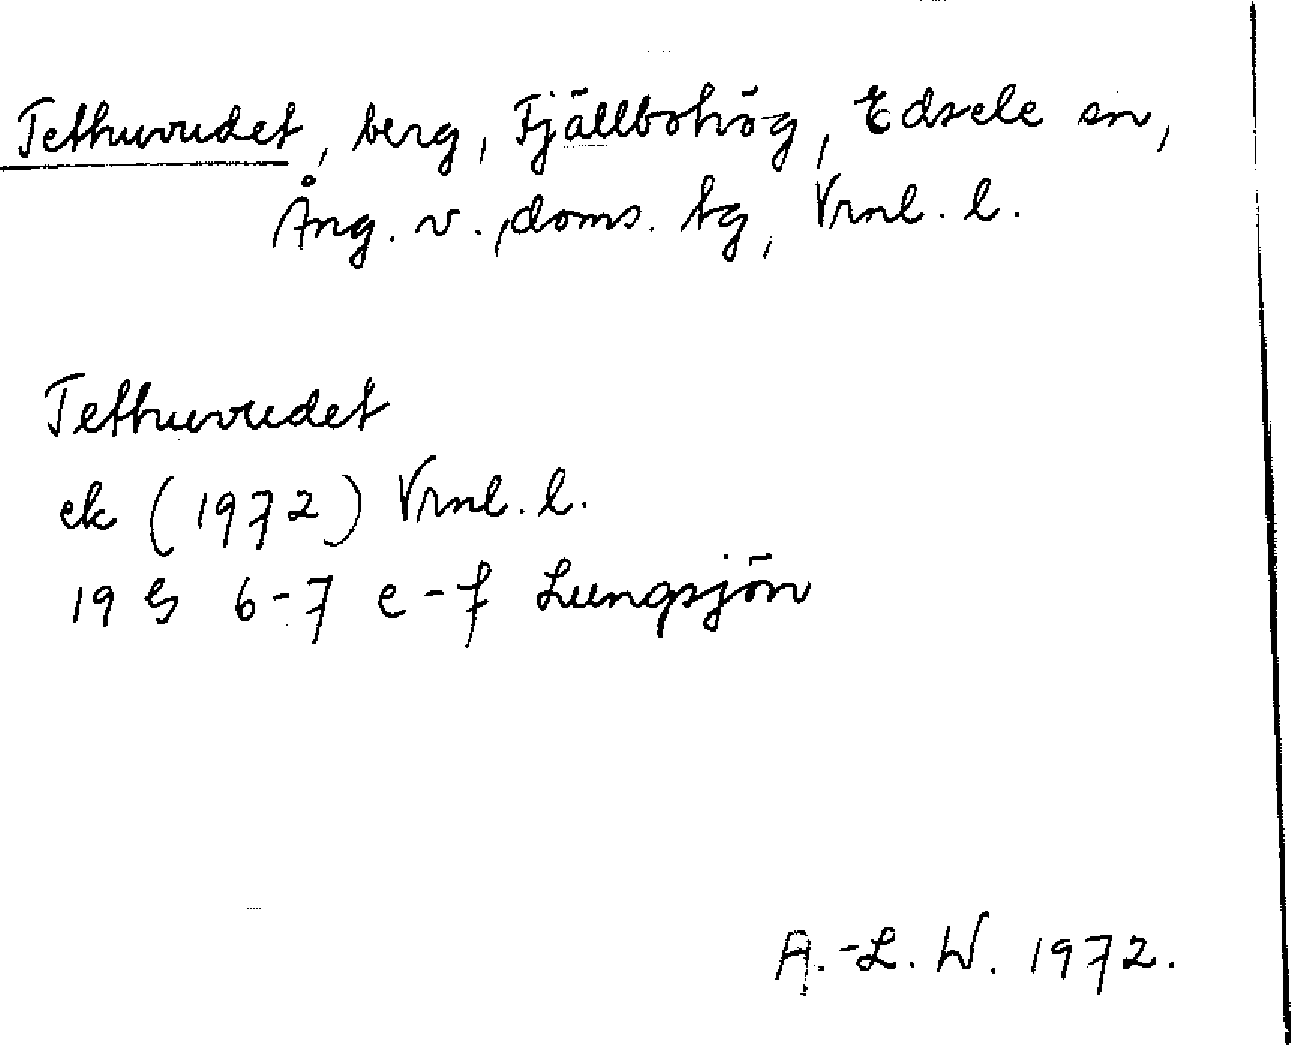 Tethuvudet, berg, Fjällbohög, Edsele sn,
Ång. v., doms. tg, Vrnl. l.
Tethuvudet
ek (1972) Vrnl. l.
19 G 6-7 e-f Lungsjön
A.-L. W. 1972.